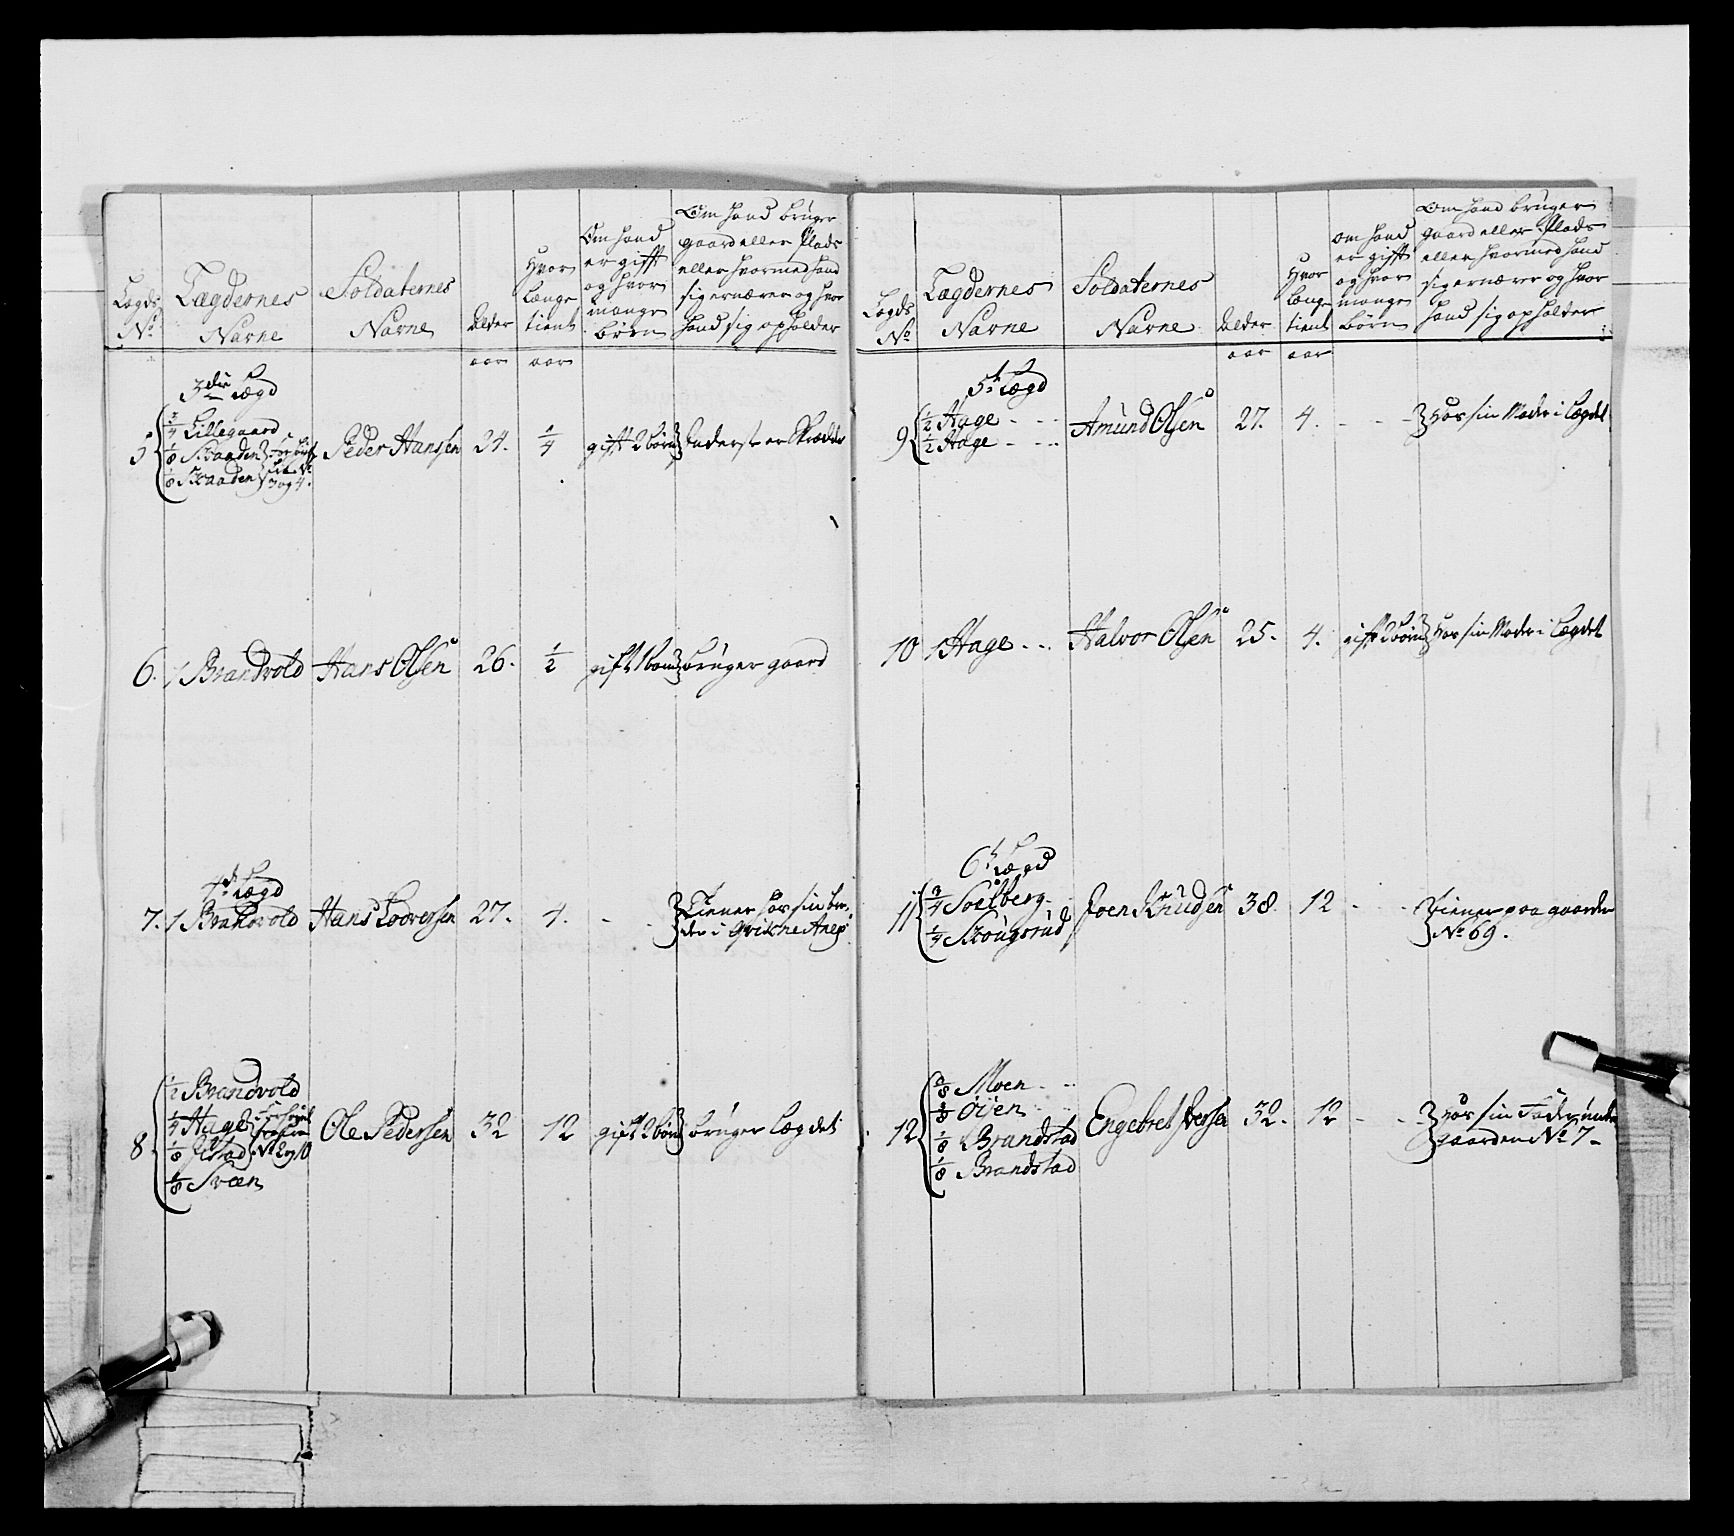 Lægds
No
Lægdernes
Navne
Soldaternes
Navne
Alder
Hvor
længe
tient
Om hand
er gift
og hvor
mange
børn
Om hand bruger
gaard eller Plads
eller hvormed hand
sig ernærer og hvor
hand sig opholder
aar aar
3die Lægd
5 3/4 Lillegaard
1/8 Skaaden
1/8 Skaaden
3 og 4.
Peder Hansen 24. 1/4 gift 2 børn Inderst er Skrædder
6. 1 Brandvold Hans Olsen 26. 1/2 gift 1 barn bruger gaard
4de Lægd
7. 1 Brandvold Hans Lodversen 27. 4. - - Tiener hos sin bro-
der i
8 1/2 Brandvold
1/4 Hage
1/8 Ilstad No 2 og 10
1/8 Sveen
Ole Pedersen 32 12 gift 2 børn bruger Lægdet
Lægds
No
Lægdernes
Navne
Soldaternes
Navne
Alder
Hvor
længe
tient
om hand
er gift
og hvor
mange
børn
Om hand bruger
gaard eller Plads
eller hvormed hand
sig ernærer og hvor
hand sig opholder
aar aar
5te Lægd
9 1/2 Hage - - -
1/2 Hage - - -
Amund Olsen 27. 4. - - - Hos sin Moder i Lægdet
10 1 Hage - - Halvor Olsen 25. 4. gift 2 børn Hos sin Moder i Lægdet
6te Lægd
11 3/4 Soelberg -
1/4 Skougsrud
Joen Knudsen 38. 12 - - Tiener paa gaarden
No 69.
12 3/8 Moen - -
3/8 Øien - -
1/8 Brandstad
1/8 Brandstad
Engebret Iversen 32. 12 - - Hos sin Fader under
gaarden No 7 -